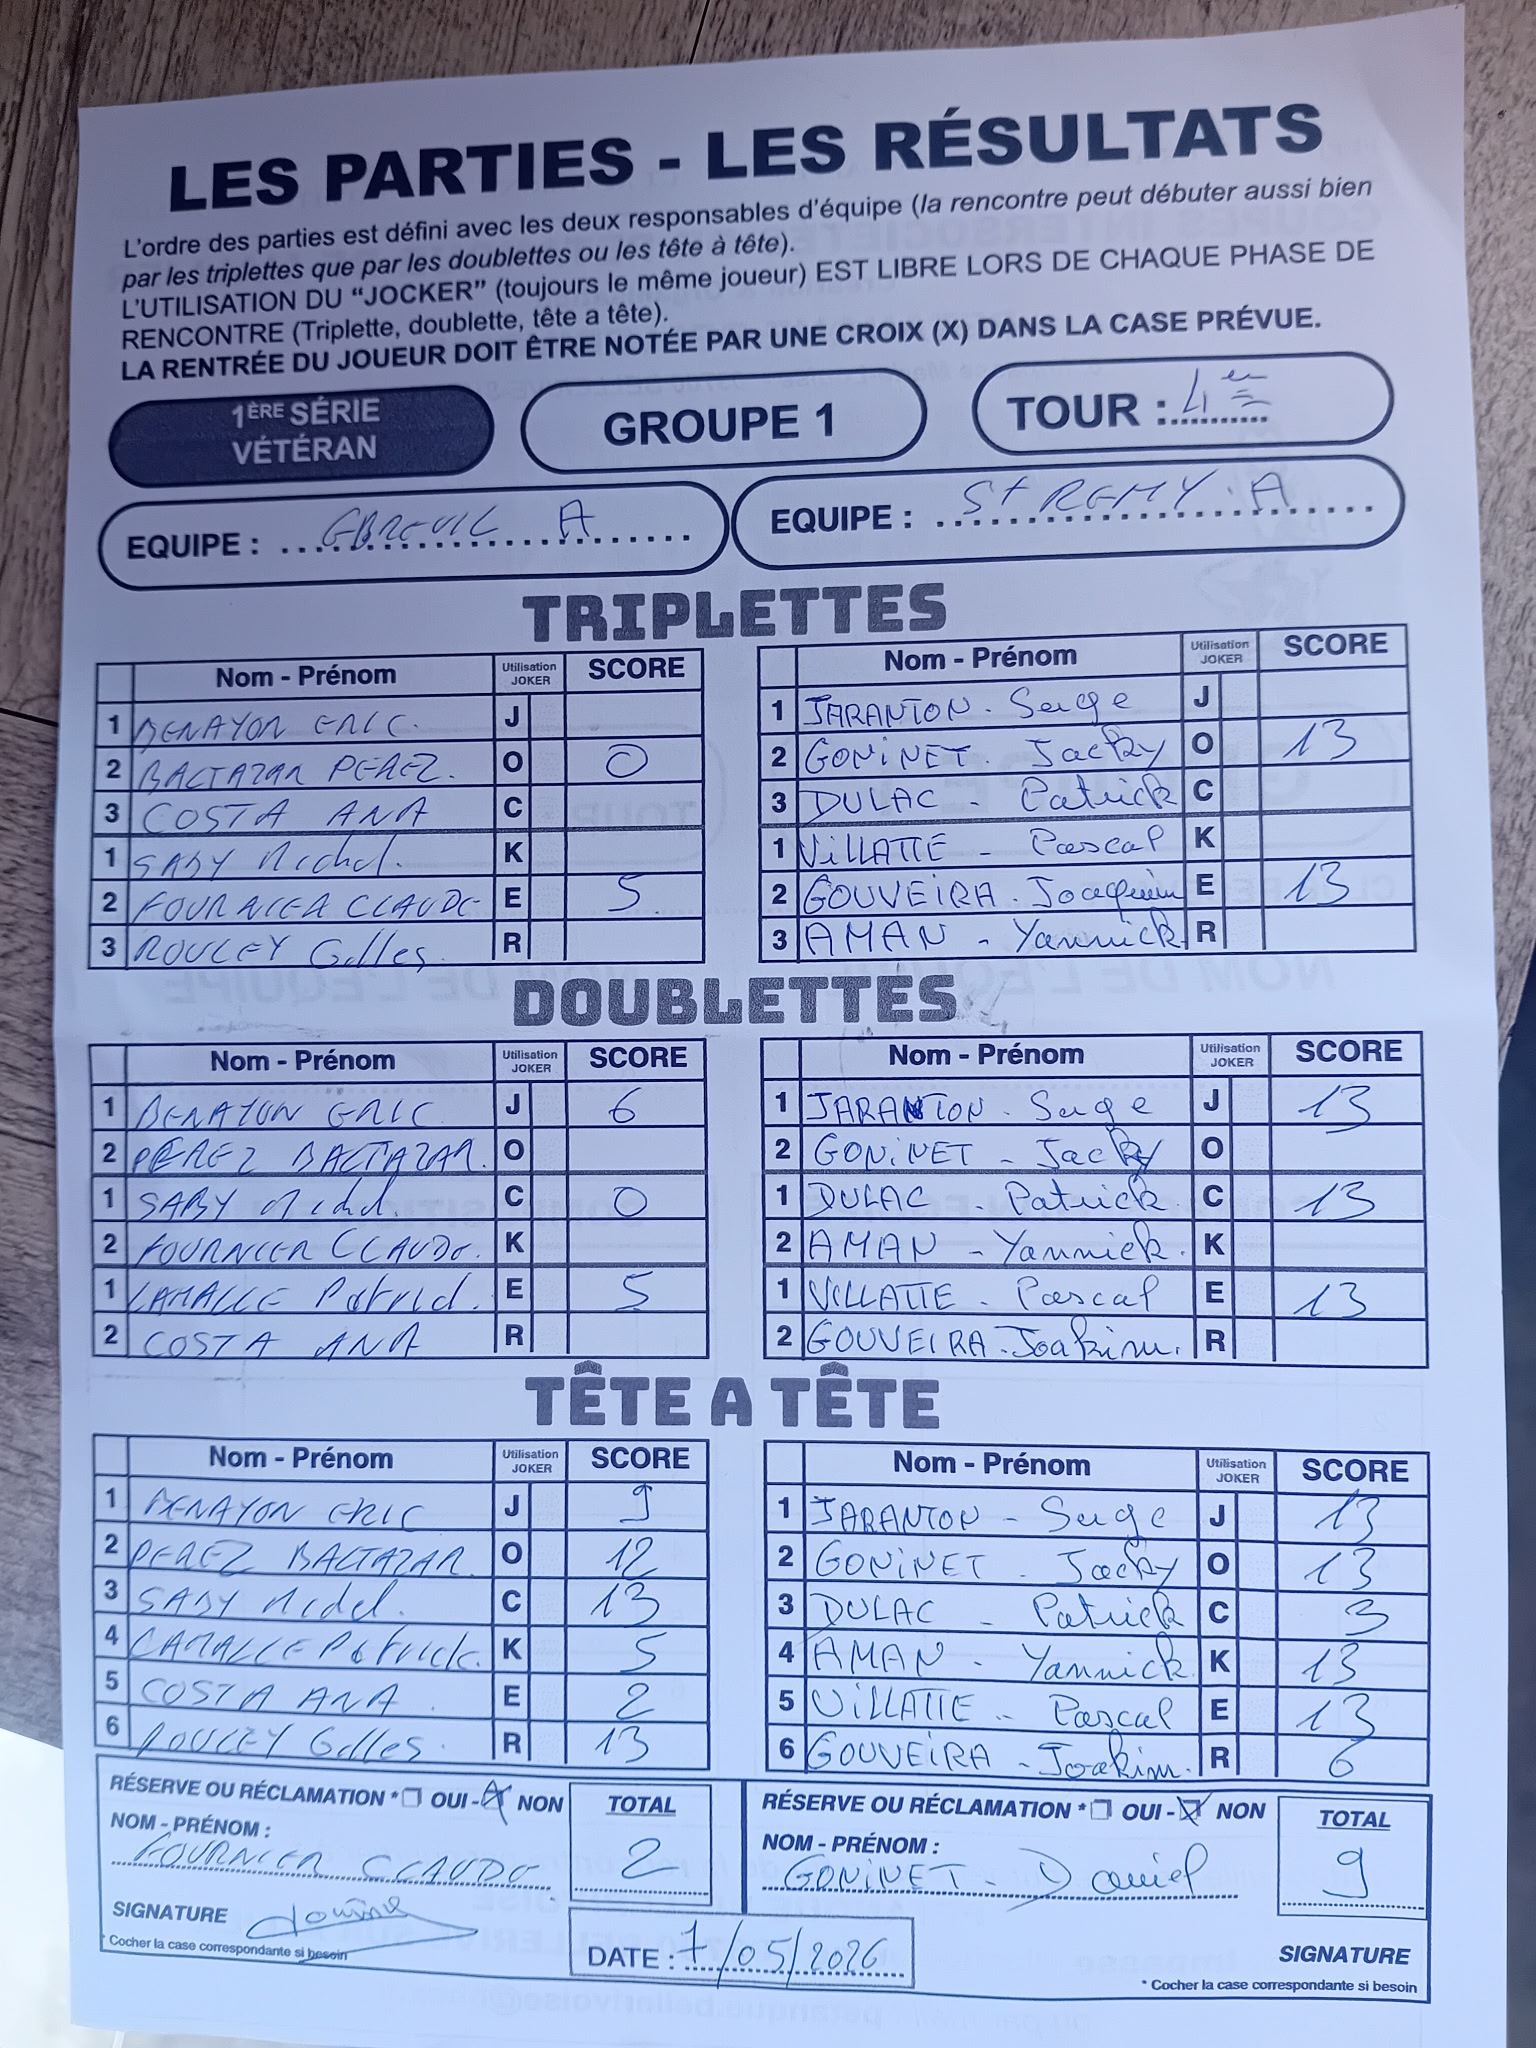 LES PARTIES - LES RÉSULTATS
L'ordre des parties est défini avec les deux responsables d'équipe (la rencontre peut débuter aussi bien
par les triplettes que par les doublettes ou les tête à tête).
L'UTILISATION DU "JOCKER" (toujours le même joueur) EST LIBRE LORS DE CHAQUE PHASE DE
RENCONTRE (Triplette, doublette, tête a tête).
LA RENTRÉE DU JOUEUR DOIT ÊTRE NOTÉE PAR UNE CROIX (X) DANS LA CASE PRÉVUE.
1ÈRE SÉRIE
VÉTÉRAN
GROUPE 1
TOUR : 4
EQUIPE : EBREUIL A
EQUIPE : St REMY. A
TRIPLETTES
Nom - Prénom Utilisation JOKER SCORE
1 BENAYON ERIC. J
2 BALTAZAR PEREZ. O 0
3 COSTA ANA C
1 SABY Michel. K
2 FOURNIER CLAUDE E 5
3 ROULEY Gilles R
Nom - Prénom Utilisation JOKER SCORE
1 JARANTON - Serge J
2 GONINET. Jacky O 13
3 DULAC - Patrick C
1 VILLATTE - Pascal K
2 GOUVEIRA. Joaquim E 13
3 AMAN - Yannick R
DOUBLETTES
Nom - Prénom Utilisation JOKER SCORE
1 BENAYON ERIC J 6
2 PEREZ BALTAZAR. O
1 SABY Michel. C 0
2 FOURNIER CLAUDE. K
1 LAMALLE Patrick. E 5
2 COSTA ANA R
Nom - Prénom Utilisation JOKER SCORE
1 JARANTON - Serge J 13
2 GONINET - Jacky O
1 DULAC - Patrick C 13
2 AMAN - Yannick. K
1 VILLATTE - Pascal E 13
2 GOUVEIRA - Joakim. R
TÊTE A TÊTE
Nom - Prénom Utilisation JOKER SCORE
1 BENAYON ERIC J 9
2 PEREZ BALTAZAR. O 12
3 SABY Michel. C 13
4 LAMALLE Patrick. K 5
5 COSTA ANA. E 2
6 ROULEY Gilles. R 13
Nom - Prénom Utilisation JOKER SCORE
1 JARANTON - Serge J 13
2 GONINET - Jacky O 13
3 DULAC - Patrick C 3
4 AMAN - Yannick. K 13
5 VILLATTE - Pascal E 13
6 GOUVEIRA - Joakim. R 6
RÉSERVE OU RÉCLAMATION * OUI - NON
NOM - PRÉNOM :
FOURNIER CLAUDE
SIGNATURE
* Cocher la case correspondante si besoin
TOTAL
2
DATE : 7/05/2026
RÉSERVE OU RÉCLAMATION * OUI - NON
NOM - PRÉNOM :
GONINET - Daniel
TOTAL
9
SIGNATURE
* Cocher la case correspondante si besoin